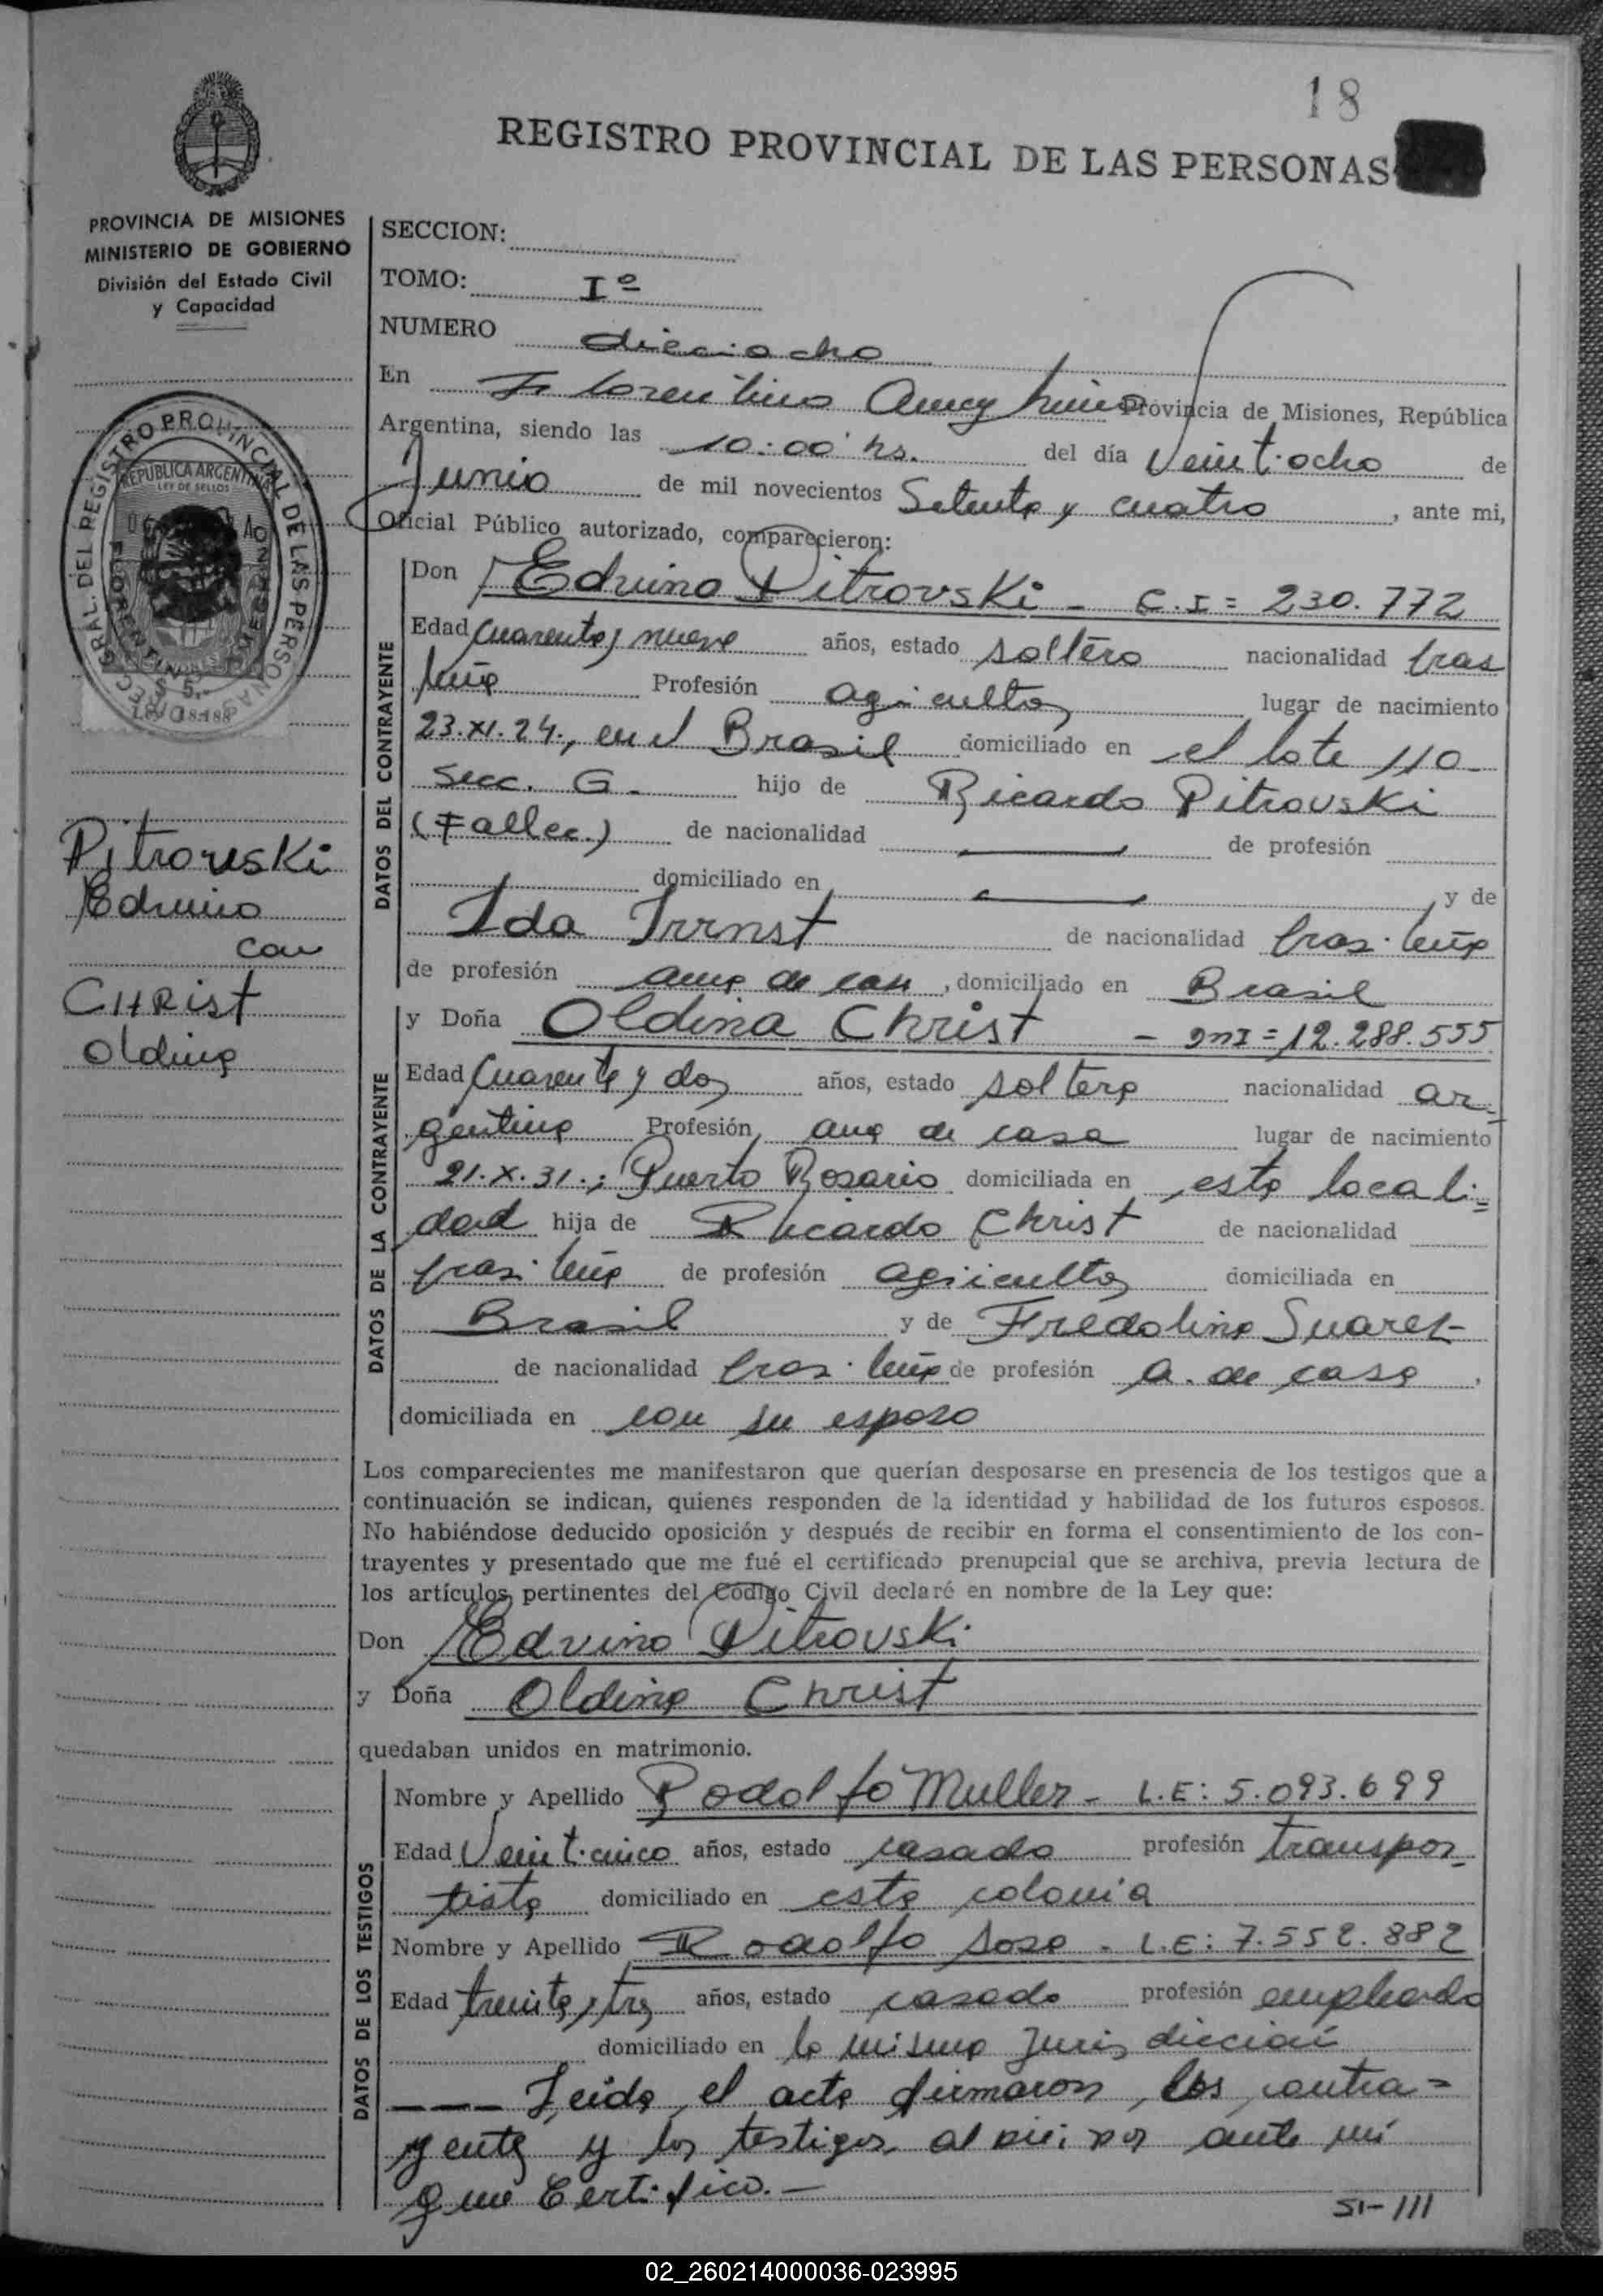 18
REGISTRO PROVINCIAL DE LAS PERSONAS
PROVINCIA DE MISIONES
MINISTERIO DE GOBIERNO
División del Estado Civil
y Capacidad
SECCION:
TOMO: Iº
NUMERO dieciocho
En Florentino Ameghino Provincia de Misiones, República
Argentina, siendo las 10:00 hs. del día Veintiocho de
Junio de mil novecientos Setenta y cuatro, ante mi,
Oficial Público autorizado, comparecieron:
DIREC. GRAL. DEL REGISTRO PROVINCIAL DE LAS PERSONAS
REPUBLICA ARGENTINA
LEY DE SELLOS
$ 5.-
Ley 18.188
Pitrovski
Edvino
con
CHRist
Oldina
DATOS DEL CONTRAYENTE
Don Edvino Pitrovski - C.I = 230.772
Edad Cuarenta y nueve años, estado soltero nacionalidad bras
leña Profesión agricultor lugar de nacimiento
23.XI.24., en el Brasil domiciliado en el lote 110
Secc. G. hijo de Ricardo Pitrovski
(Fallec.) de nacionalidad de profesión
domiciliado en y de
Ida Irrnst de nacionalidad brasileña
de profesión ama de casa, domiciliado en Brasil
DATOS DE LA CONTRAYENTE
y Doña Oldina Christ - DNI = 12.288.555
Edad Cuarenta y dos años, estado soltera nacionalidad ar-
gentina Profesión ama de casa lugar de nacimiento
21.X.31.; Puerto Rosario domiciliada en esta locali=
dad hija de Ricardo Christ de nacionalidad
brasileña de profesión agricultor domiciliada en
Brasil y de Fredolina Suarez
de nacionalidad brasileña de profesión a. de casa,
domiciliada en con su esposo
Los comparecientes me manifestaron que querían desposarse en presencia de los testigos que a
continuación se indican, quienes responden de la identidad y habilidad de los futuros esposos.
No habiéndose deducido oposición y después de recibir en forma el consentimiento de los con-
trayentes y presentado que me fué el certificado prenupcial que se archiva, previa lectura de
los artículos pertinentes del Código Civil declaré en nombre de la Ley que:
Don Edvino Pitrovski
y Doña Oldina Christ
quedaban unidos en matrimonio.
DATOS DE LOS TESTIGOS
Nombre y Apellido Rodolfo Muller - L.E: 5.093.699
Edad Veinticinco años, estado casado profesión transpor-
tista domiciliado en esta colonia
Nombre y Apellido Rodolfo Sosa - L.E: 7.552.882
Edad treinta y tres años, estado casado profesión empleado
domiciliado en la misma Jurisdicción
--- Leida el acta firmaron los contra=
yentes y los testigos al pie, por ante mí
que Certifico.-
SI-111
02_260214000036-023995